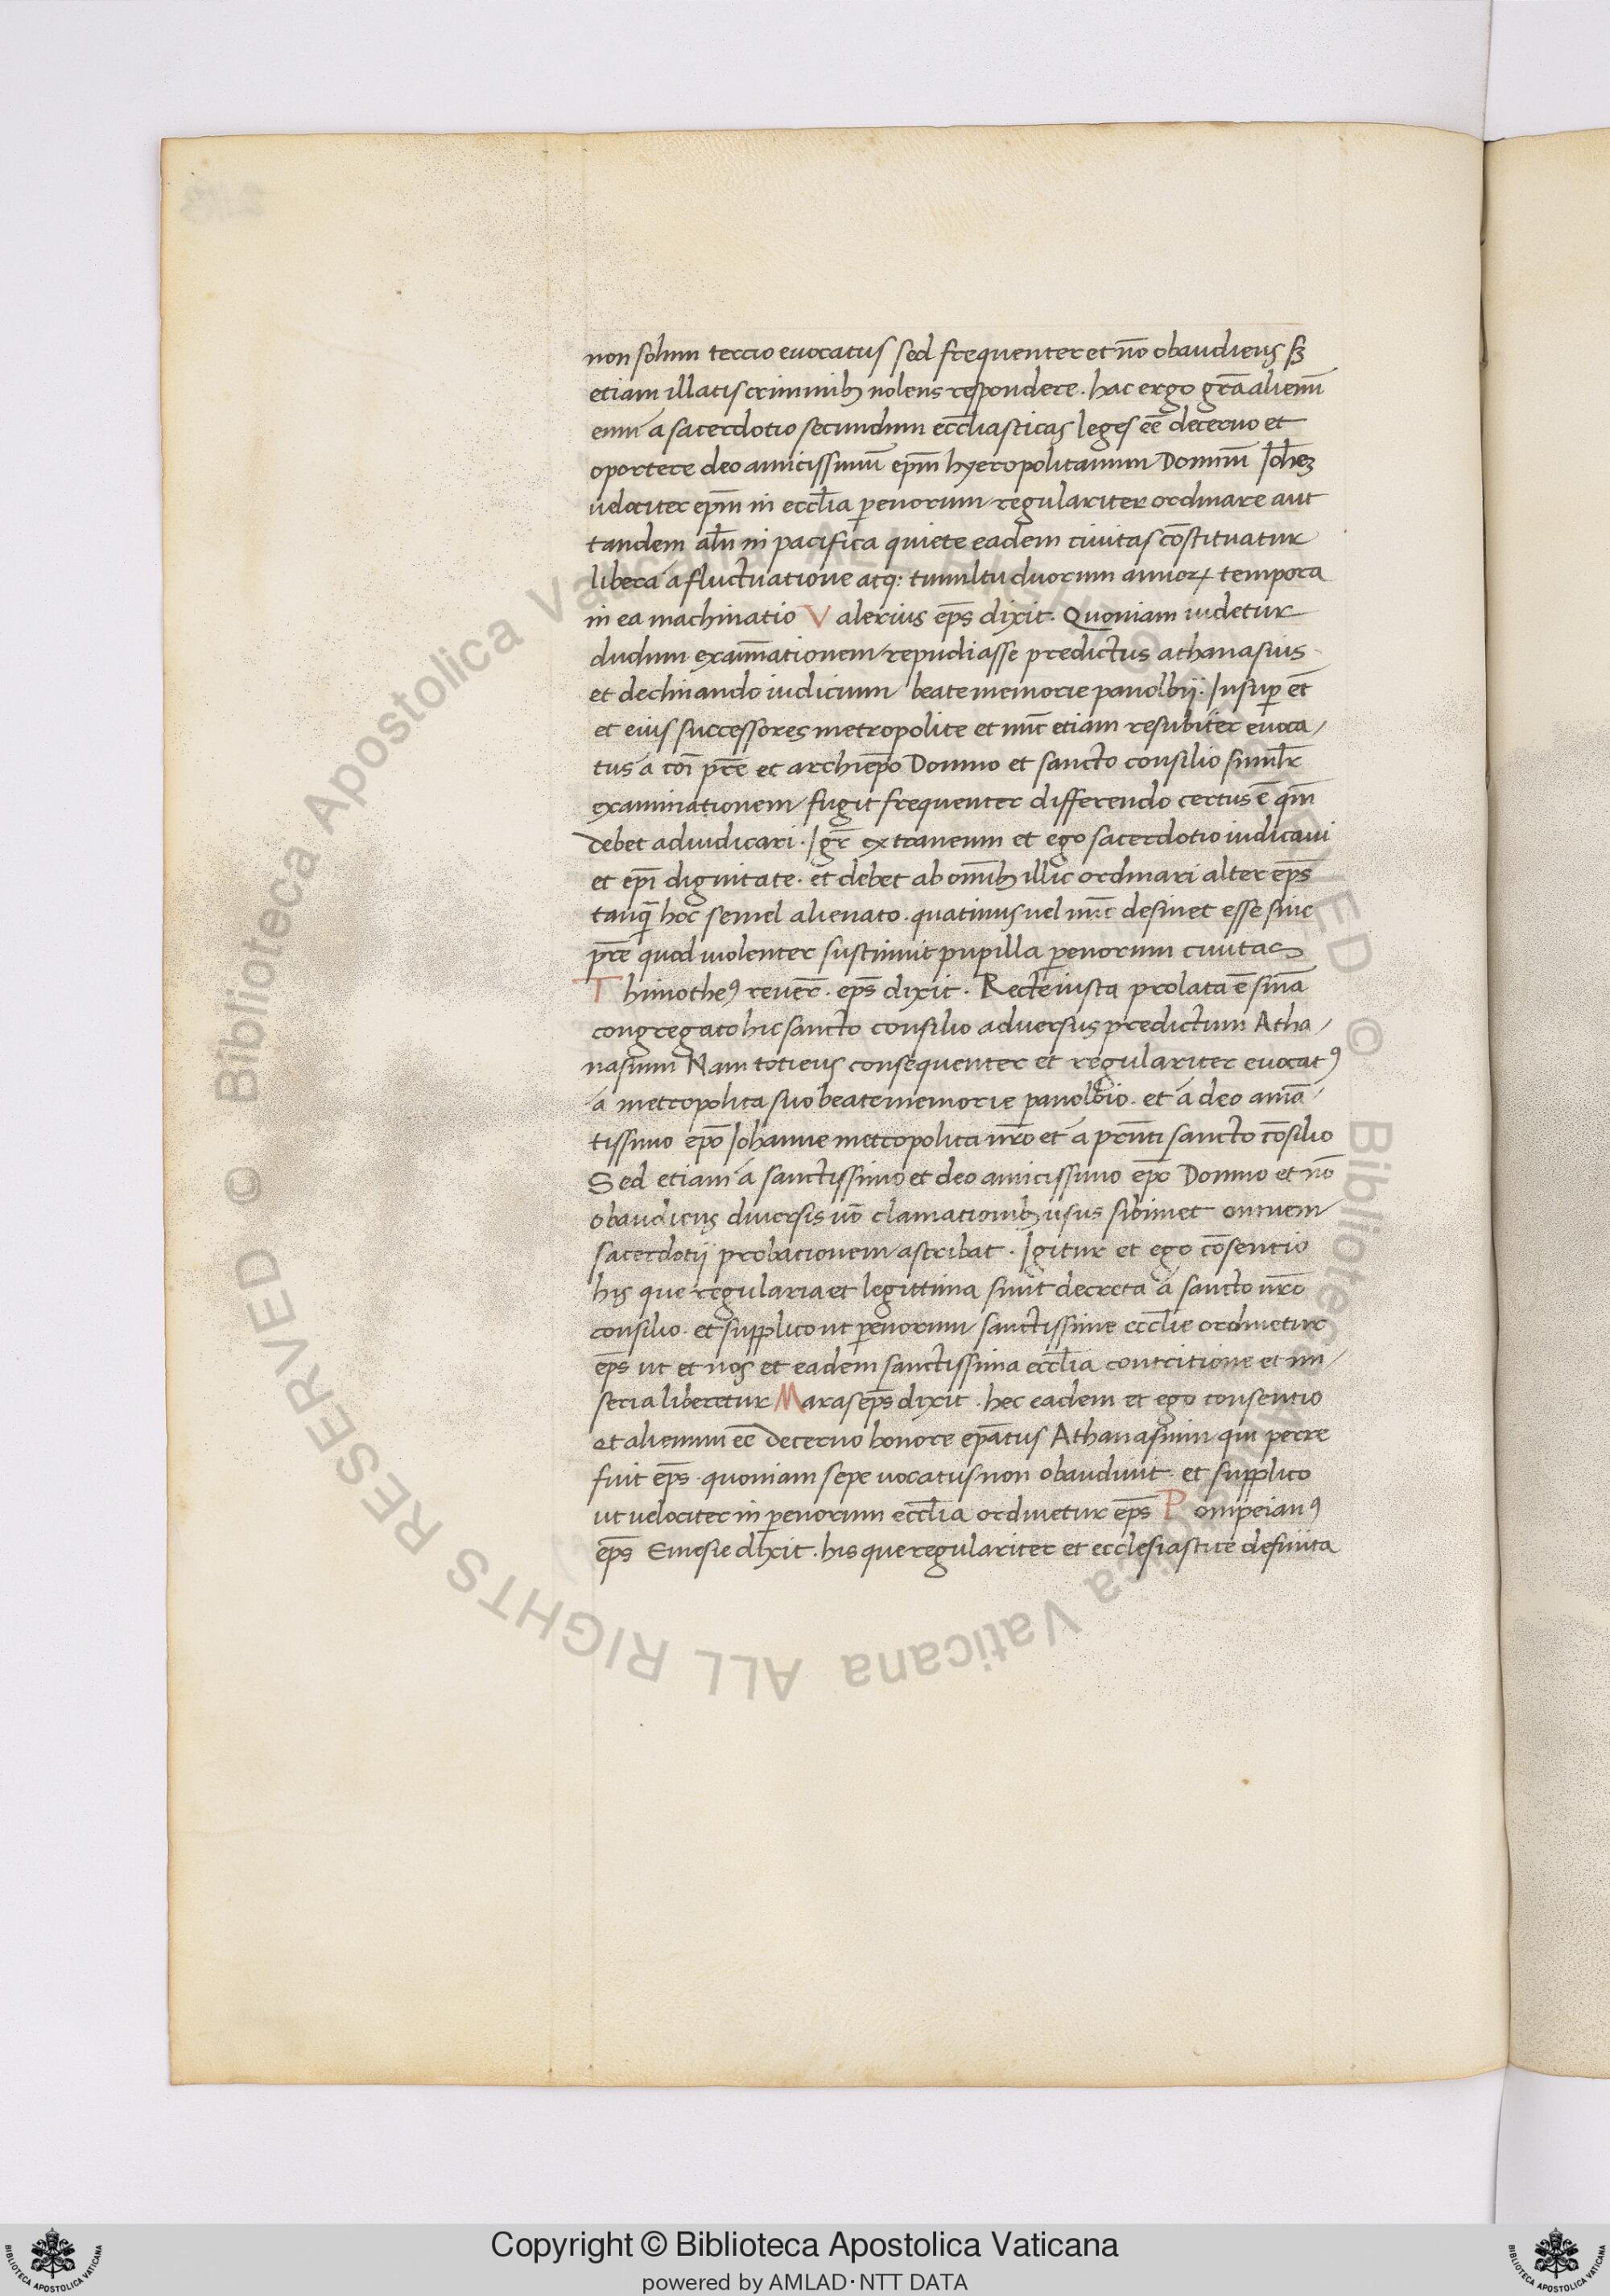 non solum tercio evocatus sed frequenter et nō obaudiens sꝫ
etiam illatis criminibꝫ nolens respondere. hac ergo grā alienū
eum a sacerdotio secundum eccl̄iasticas leges eē decerno et
oportere deo amicissimū ep̄m hyeropolitanum Domnū Joh̄eꝫ
velociter ep̄m in eccl̄ia perenorum regulariter ordinare aut
tandem al̄n in pacifica quiete eadem civitas cōstituatur
libera a fluctuatione atq: tumultu duorum annoꝝ tempora
in ea machinatio Valerius ep̄s dixit. Quoniam videtur
dudum examīationem repudiasse predictus athanasius
et declinando iudicium beate memorie panolbij. Insuper et̄
et eius successores metropolite et nūc etiam resubiter evoca-
tus a coī pr̄e et archiep̄o Domno et sancto consilio siml̄r
examinationem fugit frequenter differendo certus ē qm̄
debet adiudicari. Igr̄ extraneum et ego sacerdotio iudicavi
et ep̄i dignitate. et debet ab omībꝫ illic ordinari alter ep̄s
tanq̄ hoc semel alienato. quatinus vel nūc desinet esse sine
pr̄e quod violenter sustinuit pupilla perenorum civitas
Thimotheꝰ rever̄. ep̄s dixit. Recte iusta prolata ē sīna
congregato hic sancto consilio adversus predictum Atha-
nasium Nam totiens consequenter et regulariter evocatꝰ
a metropolita suo beate memorie panolbio. et a deo amā-
tissimo ep̄o Johanne metropolita nr̄o et a pr̄nti sancto cōsilio
Sed etiam a sanctissimo et deo amicissimo ep̄o Domno et nō
obaudiens diversis vō clamationibꝫ usus sibimet omnem
sacerdotij probationem astribat. Igitur et ego cōsentio
his que regularia et legittima sunt decreta a sancto nr̄o
consilio. et supplico ut perenorum sanctissime eccl̄ie ordinetur
ep̄s ut et nos et eadem sanctissima eccl̄ia contritione et mi-
seria liberetur Maras ep̄s dixit. hec eadem et ego consentio
et alienum eē decerno honore ep̄atus Athanasium qui perre
fuit ep̄s. quoniam sepe vocatus non obaudivit. et supplico
ut velociter in perenorum eccl̄ia ordinetur ep̄s Pompeianꝰ
ep̄s Emesie dixit. his que regulariter et ecclesiastice definita
Copyright © Biblioteca Apostolica Vaticana
powered by AMLAD·NTT DATA